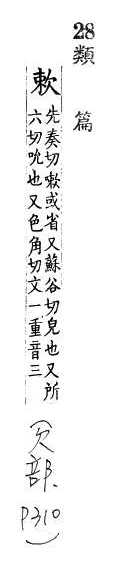 28類篇
欶
先奏切欶或省又蘇谷切皃也又所
六切吮也又色角切文一重音三
(欠部.P310)